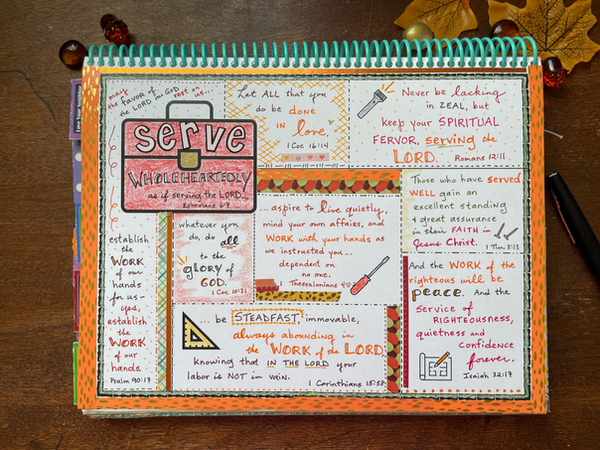 may
the favor of
the LORD our GOD
rest on
us...
serve
WHOLEHEARTEDLY
as if serving the LORD...
Ephesians 6:7
establish
the
WORK
of our
hands
for us—
yes,
establish
the
WORK
of our
hands.
Psalm 90:17
Let ALL that you
do be done
IN love.
1 Cor. 16:14
Never be lacking
in ZEAL, but
keep your SPIRITUAL
FERVOR, serving the
LORD.
Romans 12:11
whatever you
do, do all
to the
glory of
GOD.
1 Cor. 10:31
...aspire to live quietly,
mind your own affairs, and
WORK with your hands as
we instructed you...
dependent on
no one.
1 Thessalonians
Those who have served
WELL gain an
excellent standing
& great assurance
in their FAITH in
Jesus Christ.
1 Tim. 3:13
...be STEADFAST, immovable,
always abounding in
the WORK of the LORD,
knowing that IN THE LORD your
labor is NOT in vain.
1 Corinthians 15:58
And the WORK of the
righteous will be
peace. And the
service of
RIGHTEOUSNESS,
quietness and
confidence
forever.
Isaiah 32:17